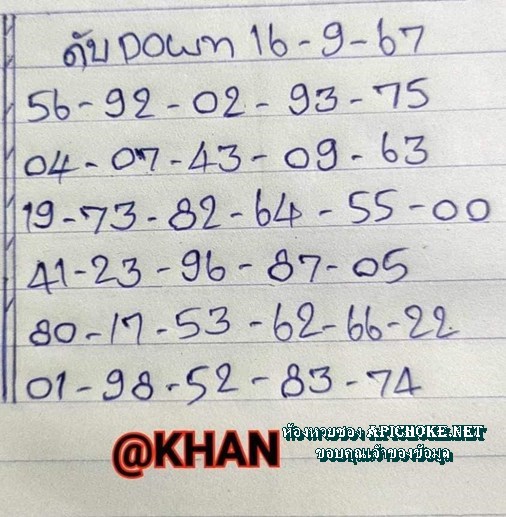 ดับDOWท 16-9-67
56-92-02-93-75
04-07-43-09-63
19-73-82-64-55-00
41-23-96-87-05
80-17-53-62-66-22
01-98-52-83-74
@KHAN
ห้องหวยซอง APICHOKE.NET
ขอบคุณเจ้าของข้อมูล